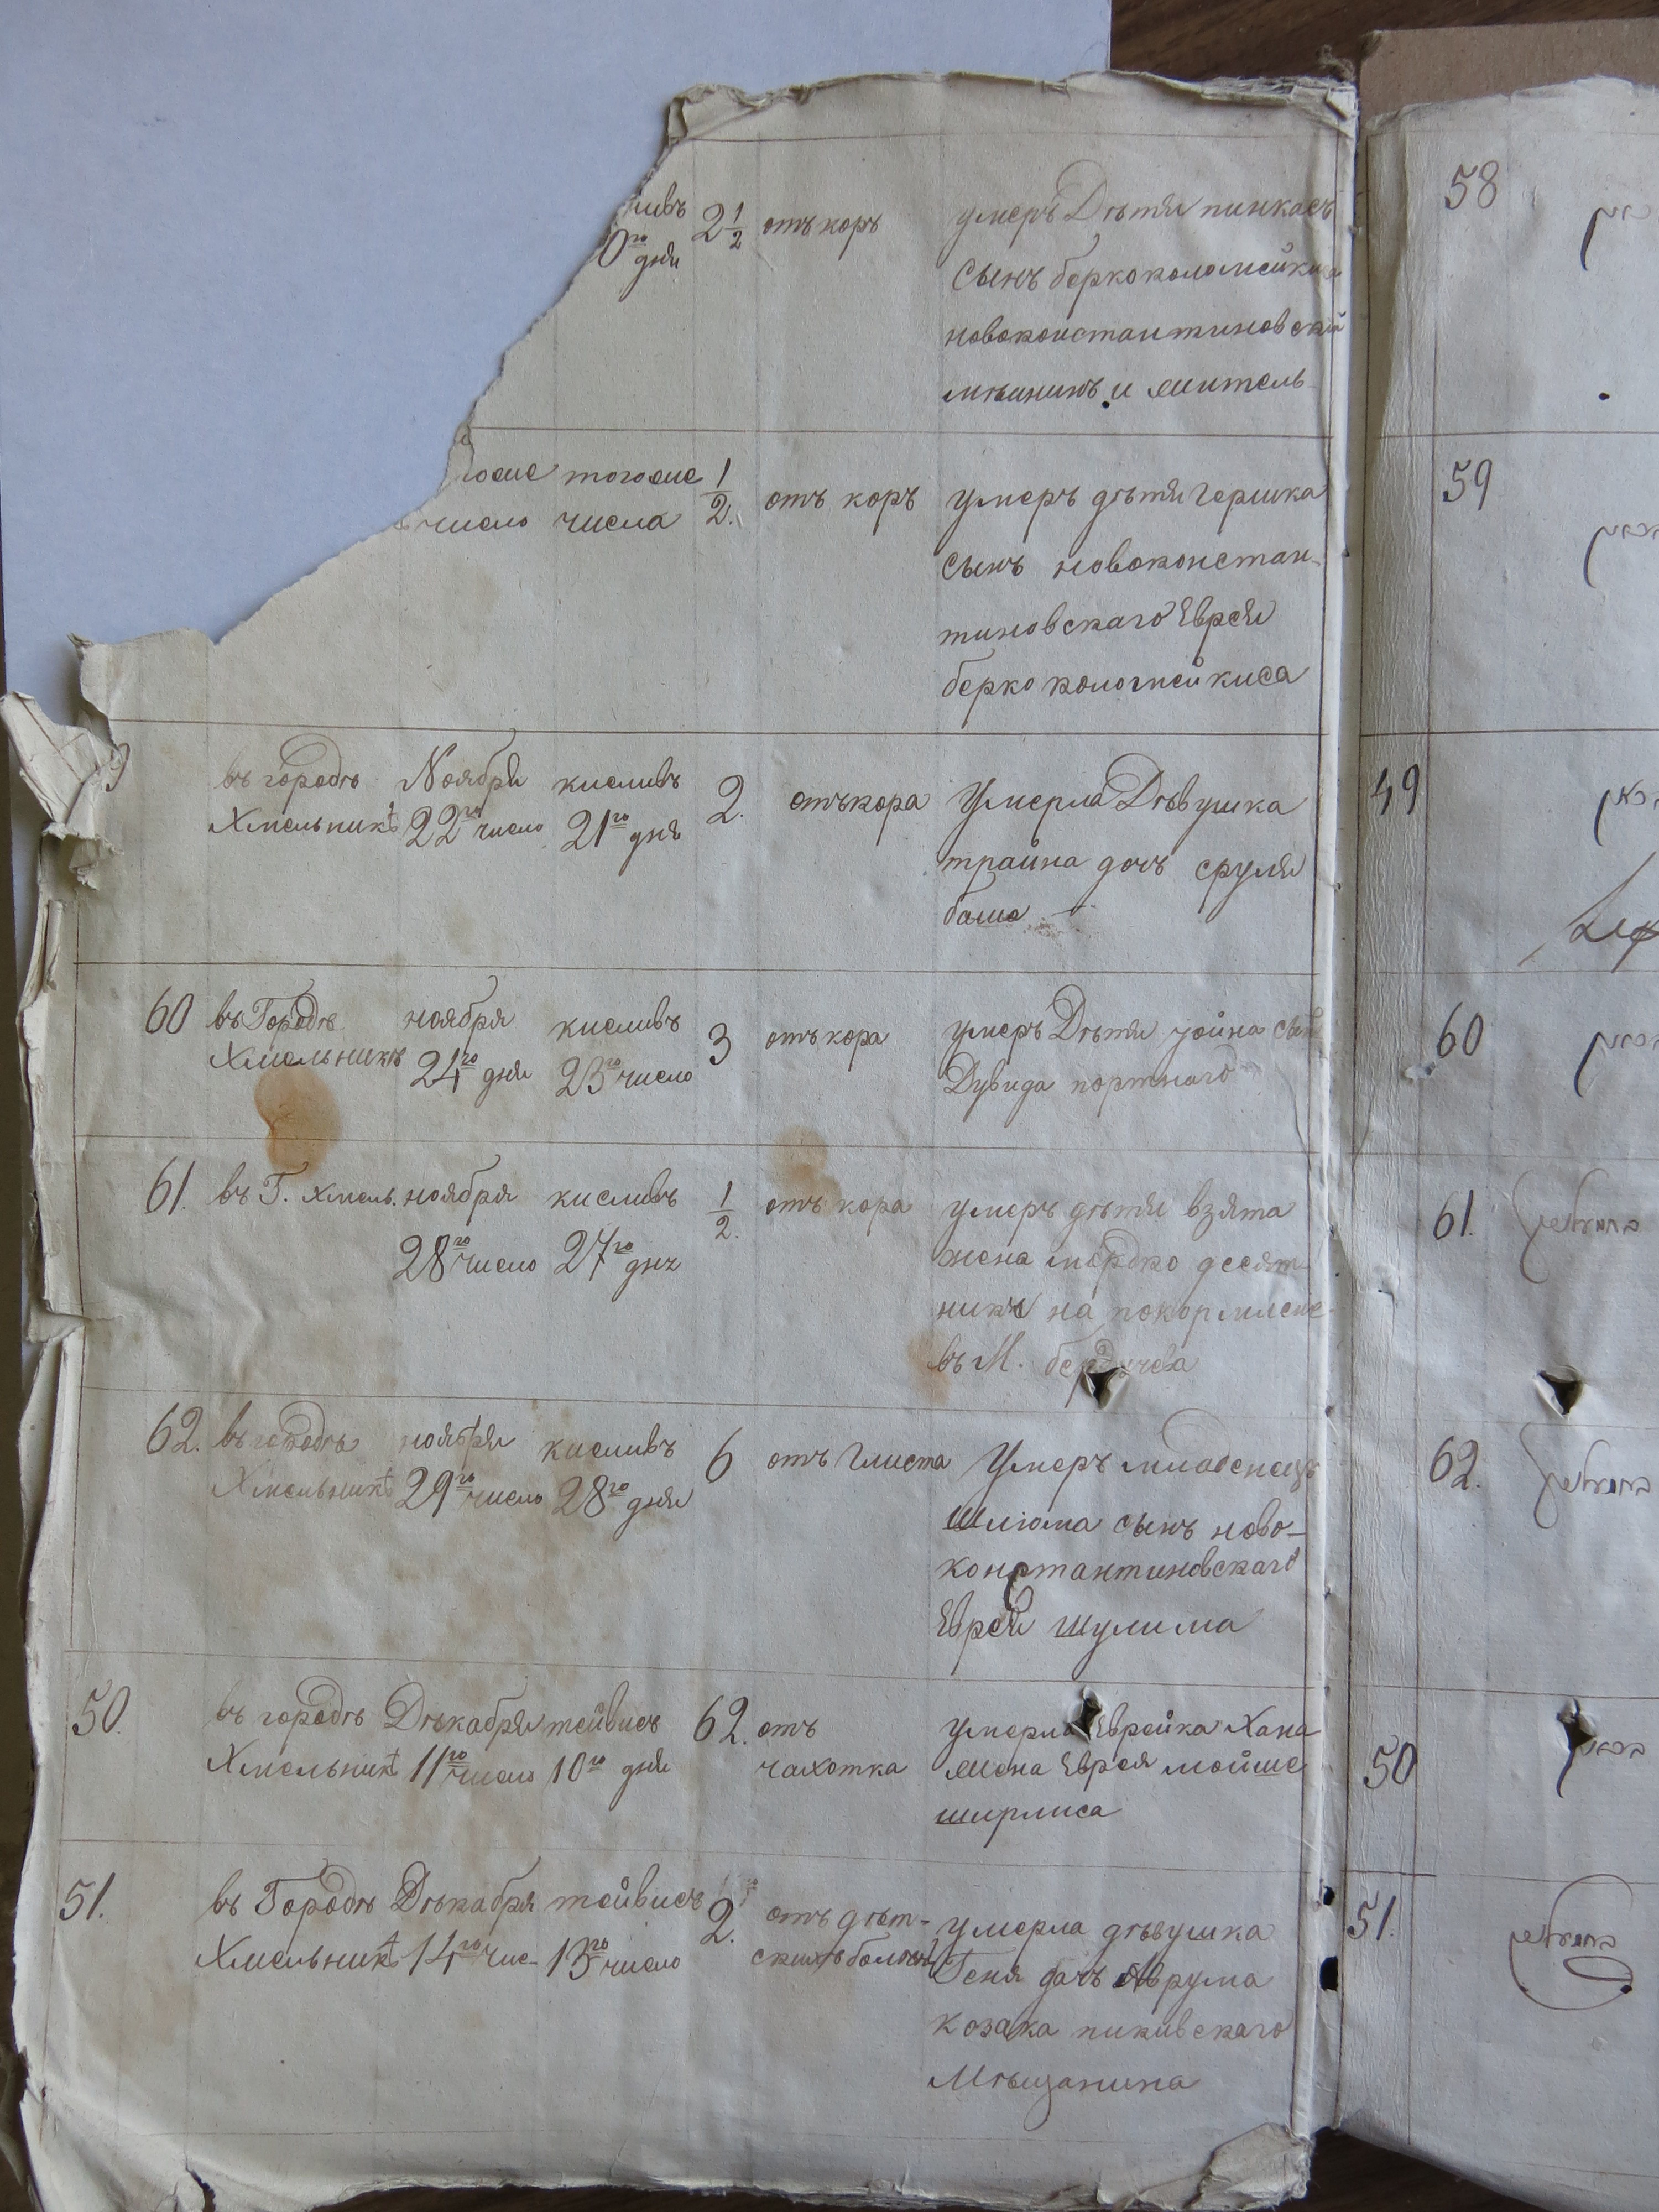 2 1/2 отъ коръ
дня
умеръ Дѣтя пинкасъ
сынъ берко коломейкиса
новоконстантиновскій
мѣшнинъ и житель
тогоже 1/2. отъ коръ
число числа
умеръ дѣтя Гершка
сынъ новоконстан-
тиновскаго Еврея
берко коломейкиса
въ городѣ Ноября кисливъ 2. отъ кора
Хмельникѣ 22го число 21го дня
Умерла Дѣвушка
траина дочь сруля
60 въ Городѣ ноября кисливъ 3 отъ кора
Хмельникѣ 24го дня 23го число
умеръ Дѣтя йойна сынъ
Дувида портнаго
61. въ Г. Хмель. ноября кисливъ 1/2. отъ кора
28го число 27го дня
умеръ дѣтя взята
жена мордко десят
никъ на покормлене
въ М. бердичева
62. въ городѣ ноября кисливъ 6 отъ Глиста
Хмельникѣ 29го число 28го дня
Умеръ младенецъ
Шлюма сынъ ново-
константиновскаго
Еврея шулима
50. въ городѣ Дѣкабря тейвисъ 62. отъ
Хмельникѣ 11го число 10го дня чахотка
умерла Еврейка Хана
жена Еврея мойше
ширлиса
51. въ Городѣ Дѣкабря тейвисъ 2. отъ дѣт-
Хмельникѣ 14го чис- 13го число скихъ
умерла дѣвушка
Геня дочь Аврума
козака пикивскаго
Мѣщанина
58
59
49
60
61.
62.
50
51.